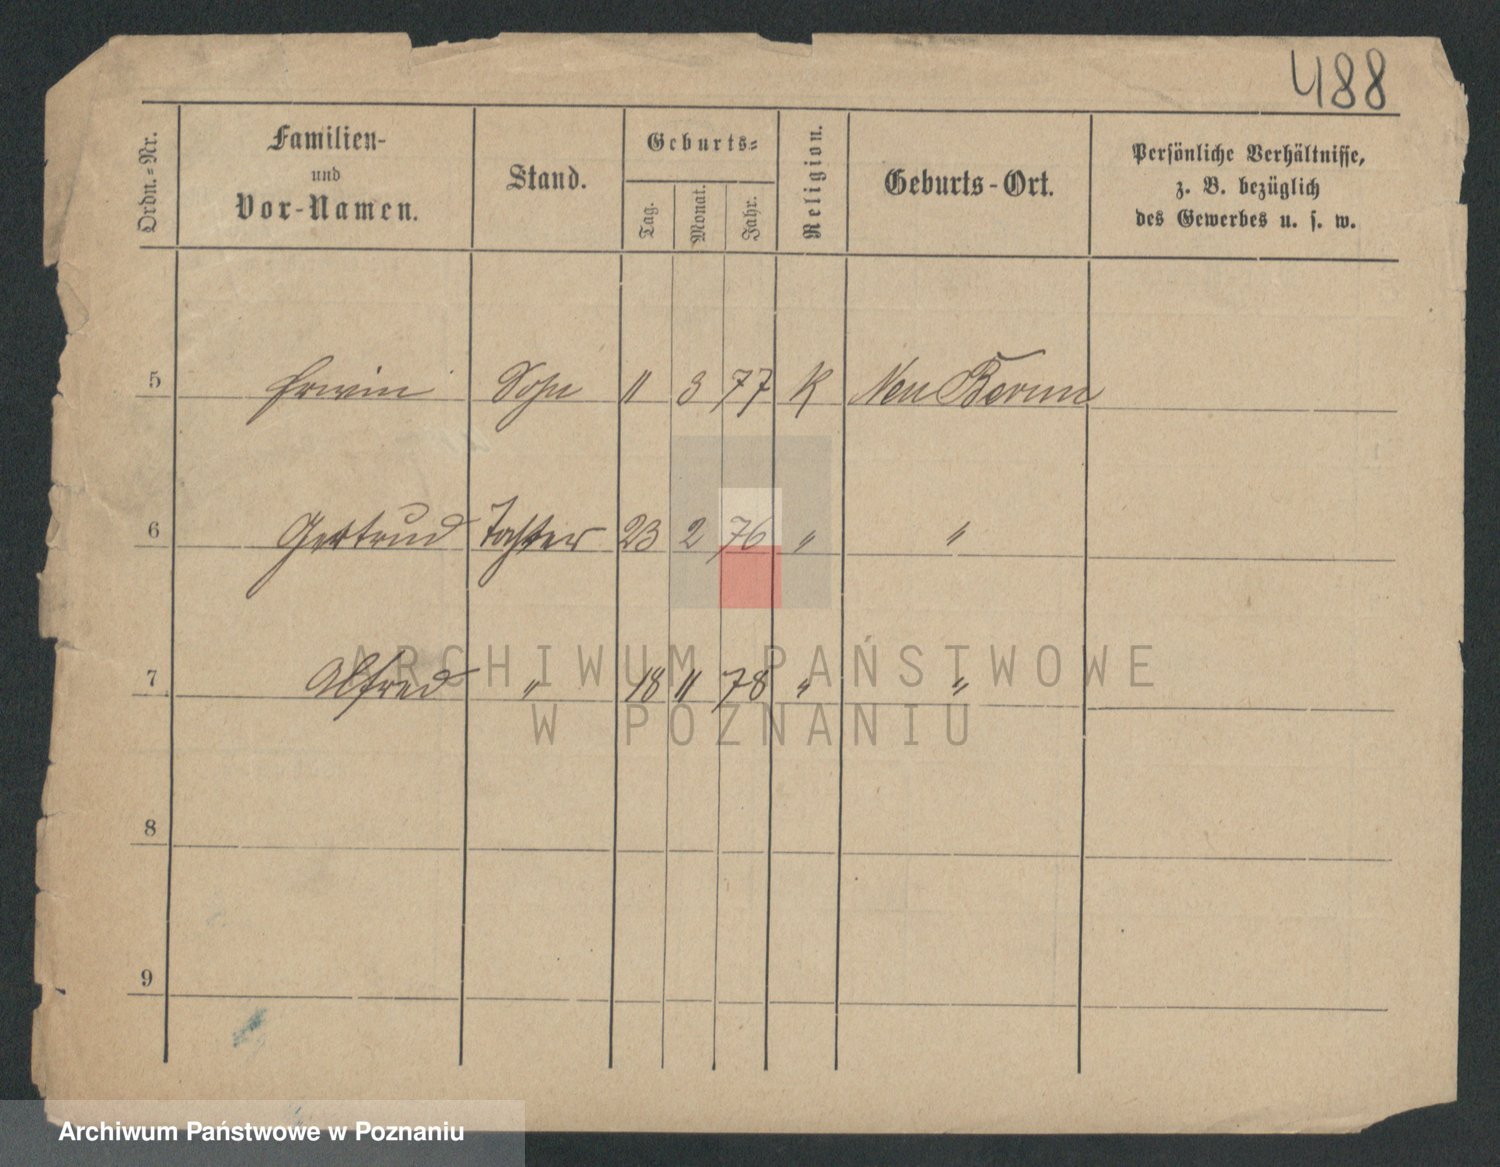 488
Ordn.-Nr.
Familien-
und
Vor-Namen.
Stand.
Geburts-
Tag.
Monat.
Jahr.
Religion.
Geburts-Ort.
Persönliche Verhältnisse,
z. B. bezüglich
des Gewerbes u. s. w.
5 Erwin Sohn 11 3 77 K Neu
6 Gertrud Tochter 23 2 76 " "
7 Alfred " 18 11 78 " "
8
9
ARCHIWUM PAŃSTWOWE
W POZNANIU
Archiwum Państwowe w Poznaniu